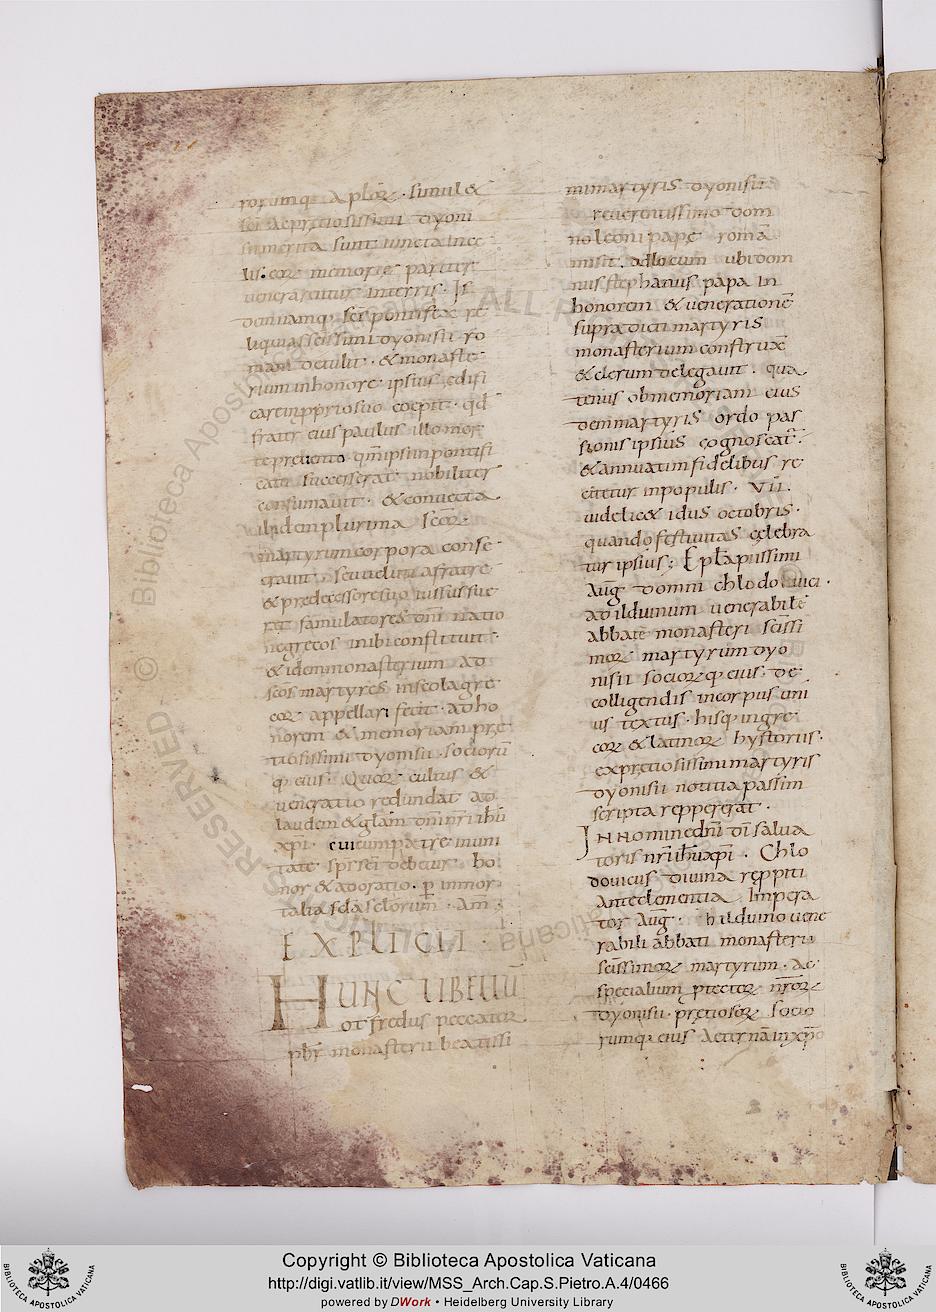 rorumq; aplor̄ · simul &
sc̄i ac pręciosissimi dyoni
sii merita sunt iuncta in cę
lis · eor̄ memorię pariter
uenerarentur in terris · Is
demamq; sc̄s pontifex re
liquias sc̄issimi dyonisii ro
mam detulit · & monaste
rium in honore ipsius ędifi
care in pprio suo coepit · qd
frater eius paulus illo mor
te pręuento qm̄ ipsi in pontifi
catu successerat nobiliter
consumauit · & conuecta
ibidem plurima sc̄or̄
martyrum corpora conse
crauit · seu uelut a fratre
& predecessore suo iussus fue
rat famulatores dn̄i natio
ne grecos inibi constituit ·
& idem monasterium ad
sc̄os martyres in scola gre
cor̄ appellari fecit · ad ho
norem & memoriam pre
tiosissimi dyonisii · sociorū
q; eius · Quor̄ cultus &
ueneratio redundat ad
laudem & gl̄am dn̄i nr̄i ihū
xp̄i · cui cum patre in uni
tate sp̄s sc̄i debetur ho
nor & adoratio · p̄ inmor
talia scła sclorum · am̄ ·
EXPLICIT ·
HUNC LIBELLŪ
otfredus peccator
pbr̄ monasterii beatissi
mi martyris dyonisii
reuerentissimo dom
no leoni papę romā
misit · ad locum ubi dom
nus stephanus papa in
honorem & uenerationē
supra dicti martyris
monasterium construx̄
& clerum delegauit · qua
tenus ob memoriam eius
dem martyris ordo pas
sionis ipsius cognoscat̄ ·
& annuatim fidelibus re
citetur in populis · VII ·
uidelic& idus octobris ·
quando festiuitas cęlebra
tur ipsius ; Epl̄a piissimi
Aug̃ domni chlodouuici ·
ad ilduinum uenerabilē
abbatē monasteri sc̄issi
mor̄ martyrum dyo
nisii socior̄q; eius · de
colligendis in corpus uni
us textus · hisq; in gre
cor̄ & latinor̄ hystoriis ·
ex pręciosissimi martyris
dyonisii notitia passim
scripta repperęrat ·
In nomine dn̄i dī salua
toris nr̄i ihū xp̄i · Chlo
douicus diuina reppiti
ante clementia Impera
tor Aug̃ · hilduino uene
rabili abbati monasterii
sc̄issimor̄ martyrum · ac
specialium ptector̄ nr̄or̄
dyonisii · pręciosor̄q; socio
rumq; eius Aeternā in xp̄o
Copyright © Biblioteca Apostolica Vaticana
http://digi.vatlib.it/view/MSS_Arch.Cap.S.Pietro.A.4/0466
powered by DWork • Heidelberg University Library